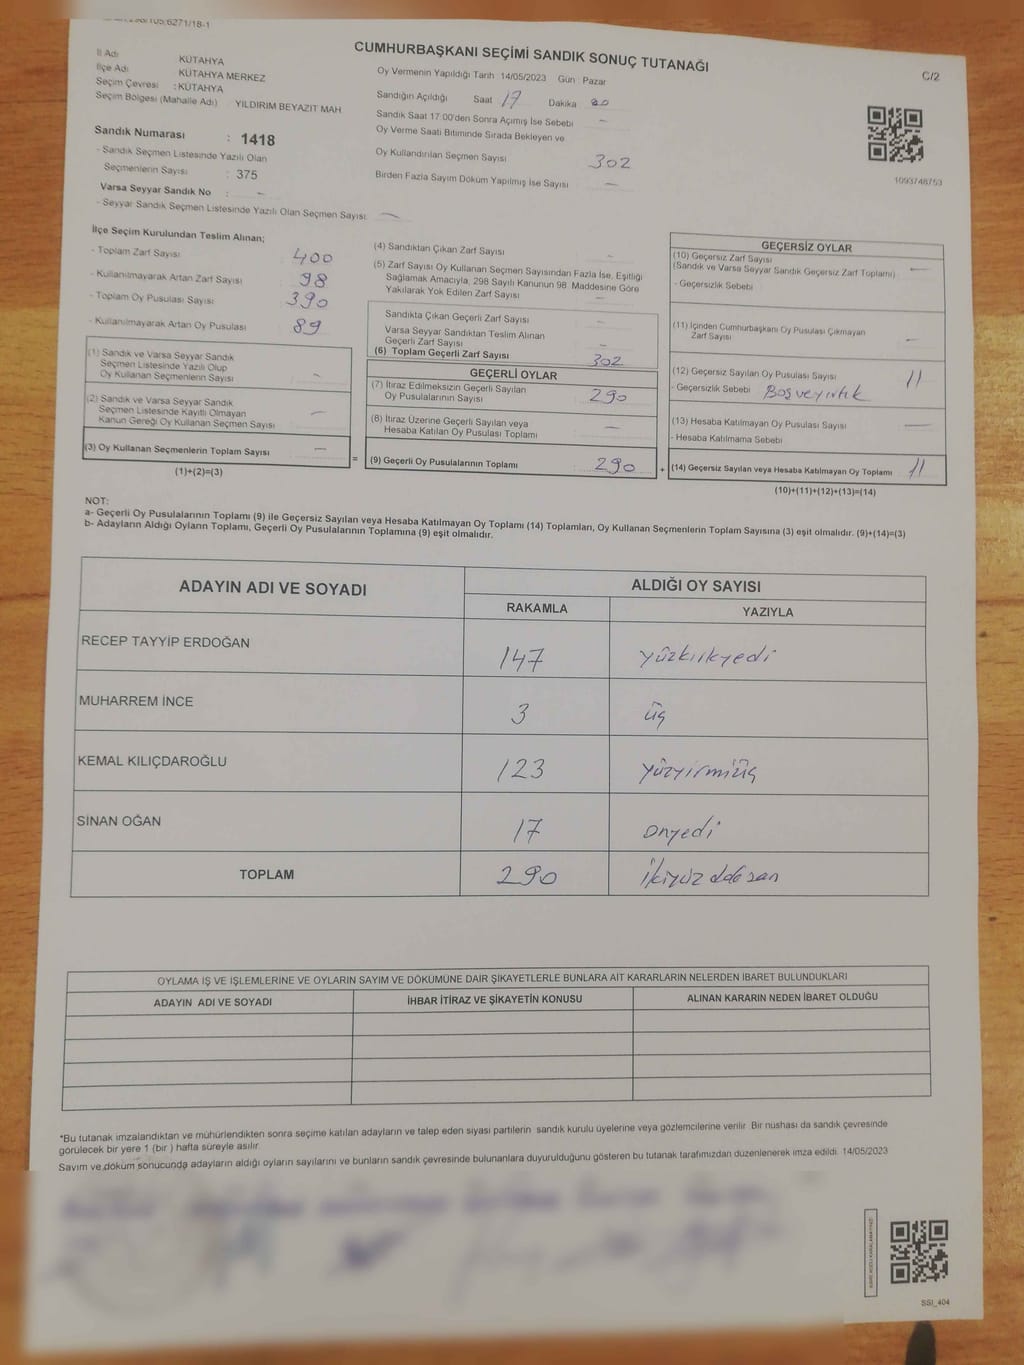 CUMHURBAŞKANI SEÇİMİ SANDIK SONUÇ TUTANAĞI
C/2
İl Adı KÜTAHYA
İlçe Adı KÜTAHYA MERKEZ
Seçim Çevresi : KÜTAHYA
Seçim Bölgesi (Mahalle Adı) YILDIRIM BEYAZIT MAH
Sandık Numarası : 1418
- Sandık Seçmen Listesinde Yazılı Olan
Seçmenlerin Sayısı : 375
Varsa Seyyar Sandık No : –
- Seyyar Sandık Seçmen Listesinde Yazılı Olan Seçmen Sayısı –
Oy Vermenin Yapıldığı Tarih 14/05/2023 Gün Pazar
Sandığın Açıldığı Saat 17 Dakika
Sandık Saat 17.00'den Sonra Açılmış İse Sebebi –
Oy Verme Saati Bitiminde Sırada Bekleyen ve
Oy Kullandırılan Seçmen Sayısı 302
Birden Fazla Sayım Döküm Yapılmış İse Sayısı –
1093748753
İlçe Seçim Kurulundan Teslim Alınan;
- Toplam Zarf Sayısı 400
- Kullanılmayarak Artan Zarf Sayısı 98
- Toplam Oy Pusulası Sayısı 390
- Kullanılmayarak Artan Oy Pusulası 89
(1) Sandık ve Varsa Seyyar Sandık
Seçmen Listesinde Yazılı Olup
Oy Kullanan Seçmenlerin Sayısı –
(2) Sandık ve Varsa Seyyar Sandık
Seçmen Listesinde Kayıtlı Olmayan
Kanun Gereği Oy Kullanan Seçmen Sayısı –
(3) Oy Kullanan Seçmenlerin Toplam Sayısı –
(1)+(2)=(3)
=
(4) Sandıktan Çıkan Zarf Sayısı –
(5) Zarf Sayısı Oy Kullanan Seçmen Sayısından Fazla İse, Eşitliği
Sağlamak Amacıyla, 298 Sayılı Kanunun 98. Maddesine Göre
Yakılarak Yok Edilen Zarf Sayısı –
Sandıkta Çıkan Geçerli Zarf Sayısı –
Varsa Seyyar Sandıktan Teslim Alınan
Geçerli Zarf Sayısı –
(6) Toplam Geçerli Zarf Sayısı 302
GEÇERLİ OYLAR
(7) İtiraz Edilmeksizin Geçerli Sayılan
Oy Pusulalarının Sayısı 290
(8) İtiraz Üzerine Geçerli Sayılan veya
Hesaba Katılan Oy Pusulası Toplamı –
(9) Geçerli Oy Pusulalarının Toplamı 290
+
GEÇERSİZ OYLAR
(10) Geçersiz Zarf Sayısı
(Sandık ve Varsa Seyyar Sandık Geçersiz Zarf Toplamı) –
- Geçersizlik Sebebi
(11) İçinden Cumhurbaşkanı Oy Pusulası Çıkmayan
Zarf Sayısı –
(12) Geçersiz Sayılan Oy Pusulası Sayısı 11
- Geçersizlik Sebebi Boş ve yırtık
(13) Hesaba Katılmayan Oy Pusulası Sayısı –
- Hesaba Katılmama Sebebi
(14) Geçersiz Sayılan veya Hesaba Katılmayan Oy Toplamı 11
(10)+(11)+(12)+(13)=(14)
NOT:
a- Geçerli Oy Pusulalarının Toplamı (9) ile Geçersiz Sayılan veya Hesaba Katılmayan Oy Toplamı (14) Toplamları, Oy Kullanan Seçmenlerin Toplam Sayısına (3) eşit olmalıdır. (9)+(14)=(3)
b- Adayların Aldığı Oyların Toplamı, Geçerli Oy Pusulalarının Toplamına (9) eşit olmalıdır.
ADAYIN ADI VE SOYADI ALDIĞI OY SAYISI
RAKAMLA YAZIYLA
RECEP TAYYİP ERDOĞAN 147 yüzkırkyedi
MUHARREM İNCE 3 üç
KEMAL KILIÇDAROĞLU 123 yüzyirmiüç
SİNAN OĞAN 17 onyedi
TOPLAM 290 ikiyüz
OYLAMA İŞ VE İŞLEMLERİNE VE OYLARIN SAYIM VE DÖKÜMÜNE DAİR ŞİKAYETLERLE BUNLARA AİT KARARLARIN NELERDEN İBARET BULUNDUKLARI
ADAYIN ADI VE SOYADI İHBAR İTİRAZ VE ŞİKAYETİN KONUSU ALINAN KARARIN NEDEN İBARET OLDUĞU
*Bu tutanak imzalandıktan ve mühürlendikten sonra seçime katılan adayların ve talep eden siyasi partilerin sandık kurulu üyelerine veya gözlemcilerine verilir. Bir nushası da sandık çevresinde
görülecek bir yere 1 (bir ) hafta süreyle asılır.
Sayım ve döküm sonucunda adayların aldığı oyların sayılarını ve bunların sandık çevresinde bulunanlara duyurulduğunu gösteren bu tutanak tarafımızdan düzenlenerek imza edildi. 14/05/2023
SSI_404